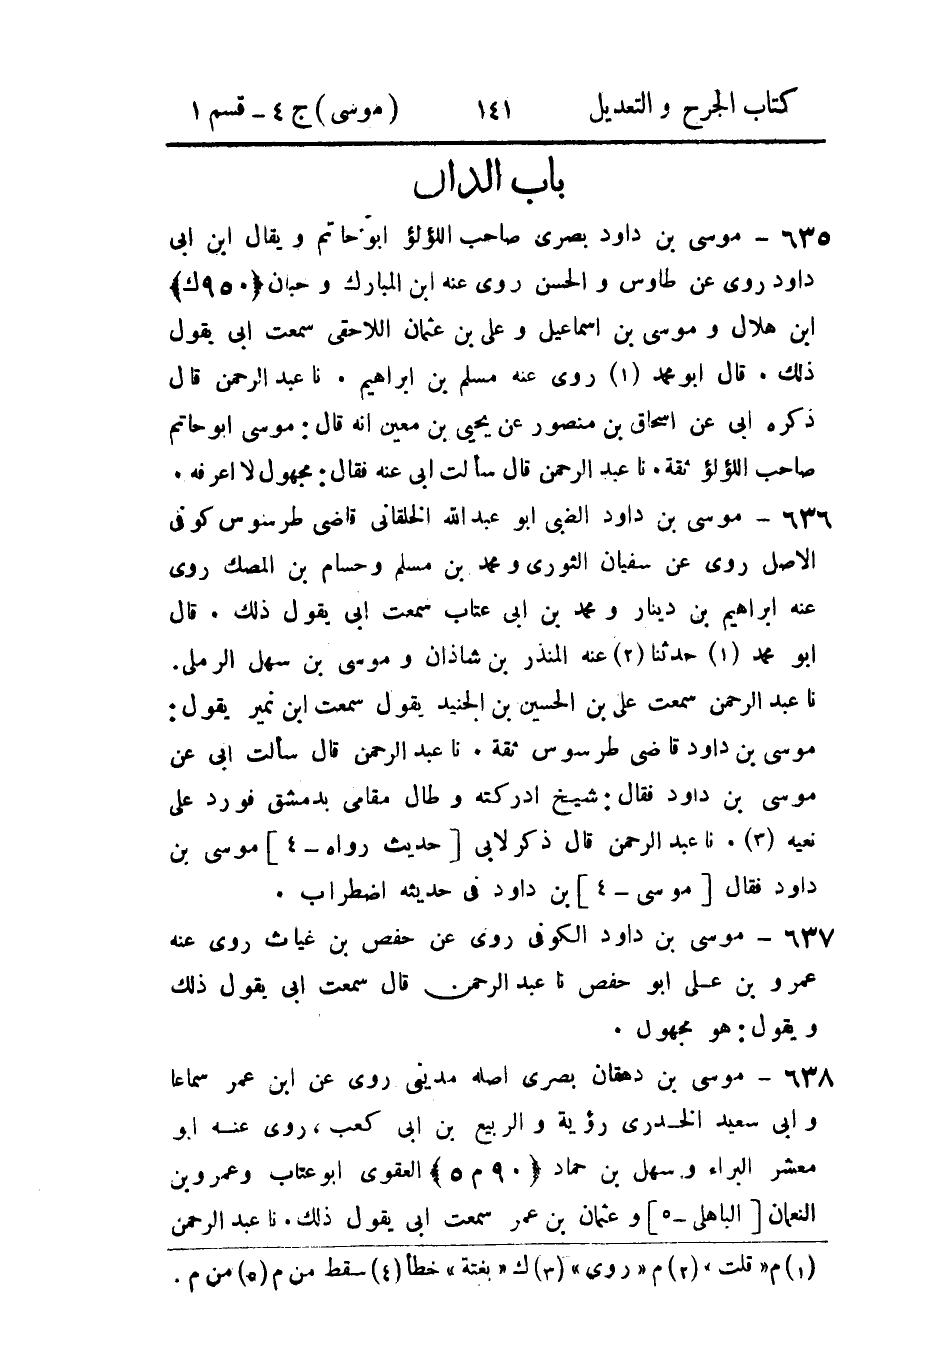 كتاب الجرح و التعديل ١٤١ (موسى) ج ٤ - قسم ١
باب الدال
٦٣٥ - موسى بن داود بصرى صاحب اللؤلؤ ابو حاتم و يقال ابن ابى
داود روى عن طاوس و الحسن روى عنه ابن المبارك و حبان ﴿٩٥٠ك﴾
ابن هلال و موسى بن اسماعيل و على بن عثمان اللاحقى سمعت ابى يقول
ذلك . قال ابو محمد (١) روى عنه مسلم بن ابراهيم . نا عبد الرحمن قال
ذكره ابى عن اسحاق بن منصور عن يحيى بن معين انه قال: موسى ابو حاتم
صاحب اللؤلؤ ثقة . نا عبد الرحمن قال سألت ابى عنه فقال: مجهول لا اعرفه .
٦٣٦ - موسى بن داود الضبى ابو عبد الله الخلقانى قاضى طرسوس كوفى
الاصل روى عن سفيان الثورى و محمد بن مسلم وحسام بن المصك روى
عنه ابراهيم بن دينار و محمد بن ابى عتاب سمعت ابى يقول ذلك . قال
ابو محمد (١) حدثنا (٢) عنه المنذر بن شاذان و موسى بن سهل الرملى.
نا عبد الرحمن سمعت على بن الحسين بن الجنيد يقول سمعت ابن نمير يقول:
موسى بن داود قاضى طرسوس ثقة . نا عبد الرحمن قال سألت ابى عن
موسى بن داود فقال: شيخ ادركته و طال مقامى بدمشق فورد على
نعيه (٣) . نا عبد الرحمن قال ذكر لابى [حديث رواه - ٤] موسى بن
داود فقال [موسى - ٤] بن داود فى حديثه اضطراب .
٦٣٧ - موسى بن داود الكوفى روى عن حفص بن غياث روى عنه
عمرو بن على ابو حفص نا عبد الرحمن قال سمعت ابى يقول ذلك
و يقول: هو مجهول .
٦٣٨ - موسى بن دهقان بصرى اصله مدينى روى عن ابن عمر سماعا
و ابى سعيد الخدرى رؤية و الربيع بن ابى كعب، روى عنه ابو
معشر البراء و سهل بن حماد ﴿٩٠ م ٥﴾ العقوى ابو عتاب وعمرو بن
النعمان [الباهلى - ٥] و عثمان بن عمر سمعت ابى يقول ذلك . نا عبد الرحمن
(١) م« قلت » (٢) م « روى » (٣) ك « بغتة » خطأ (٤) سقط من م (٥) من م .